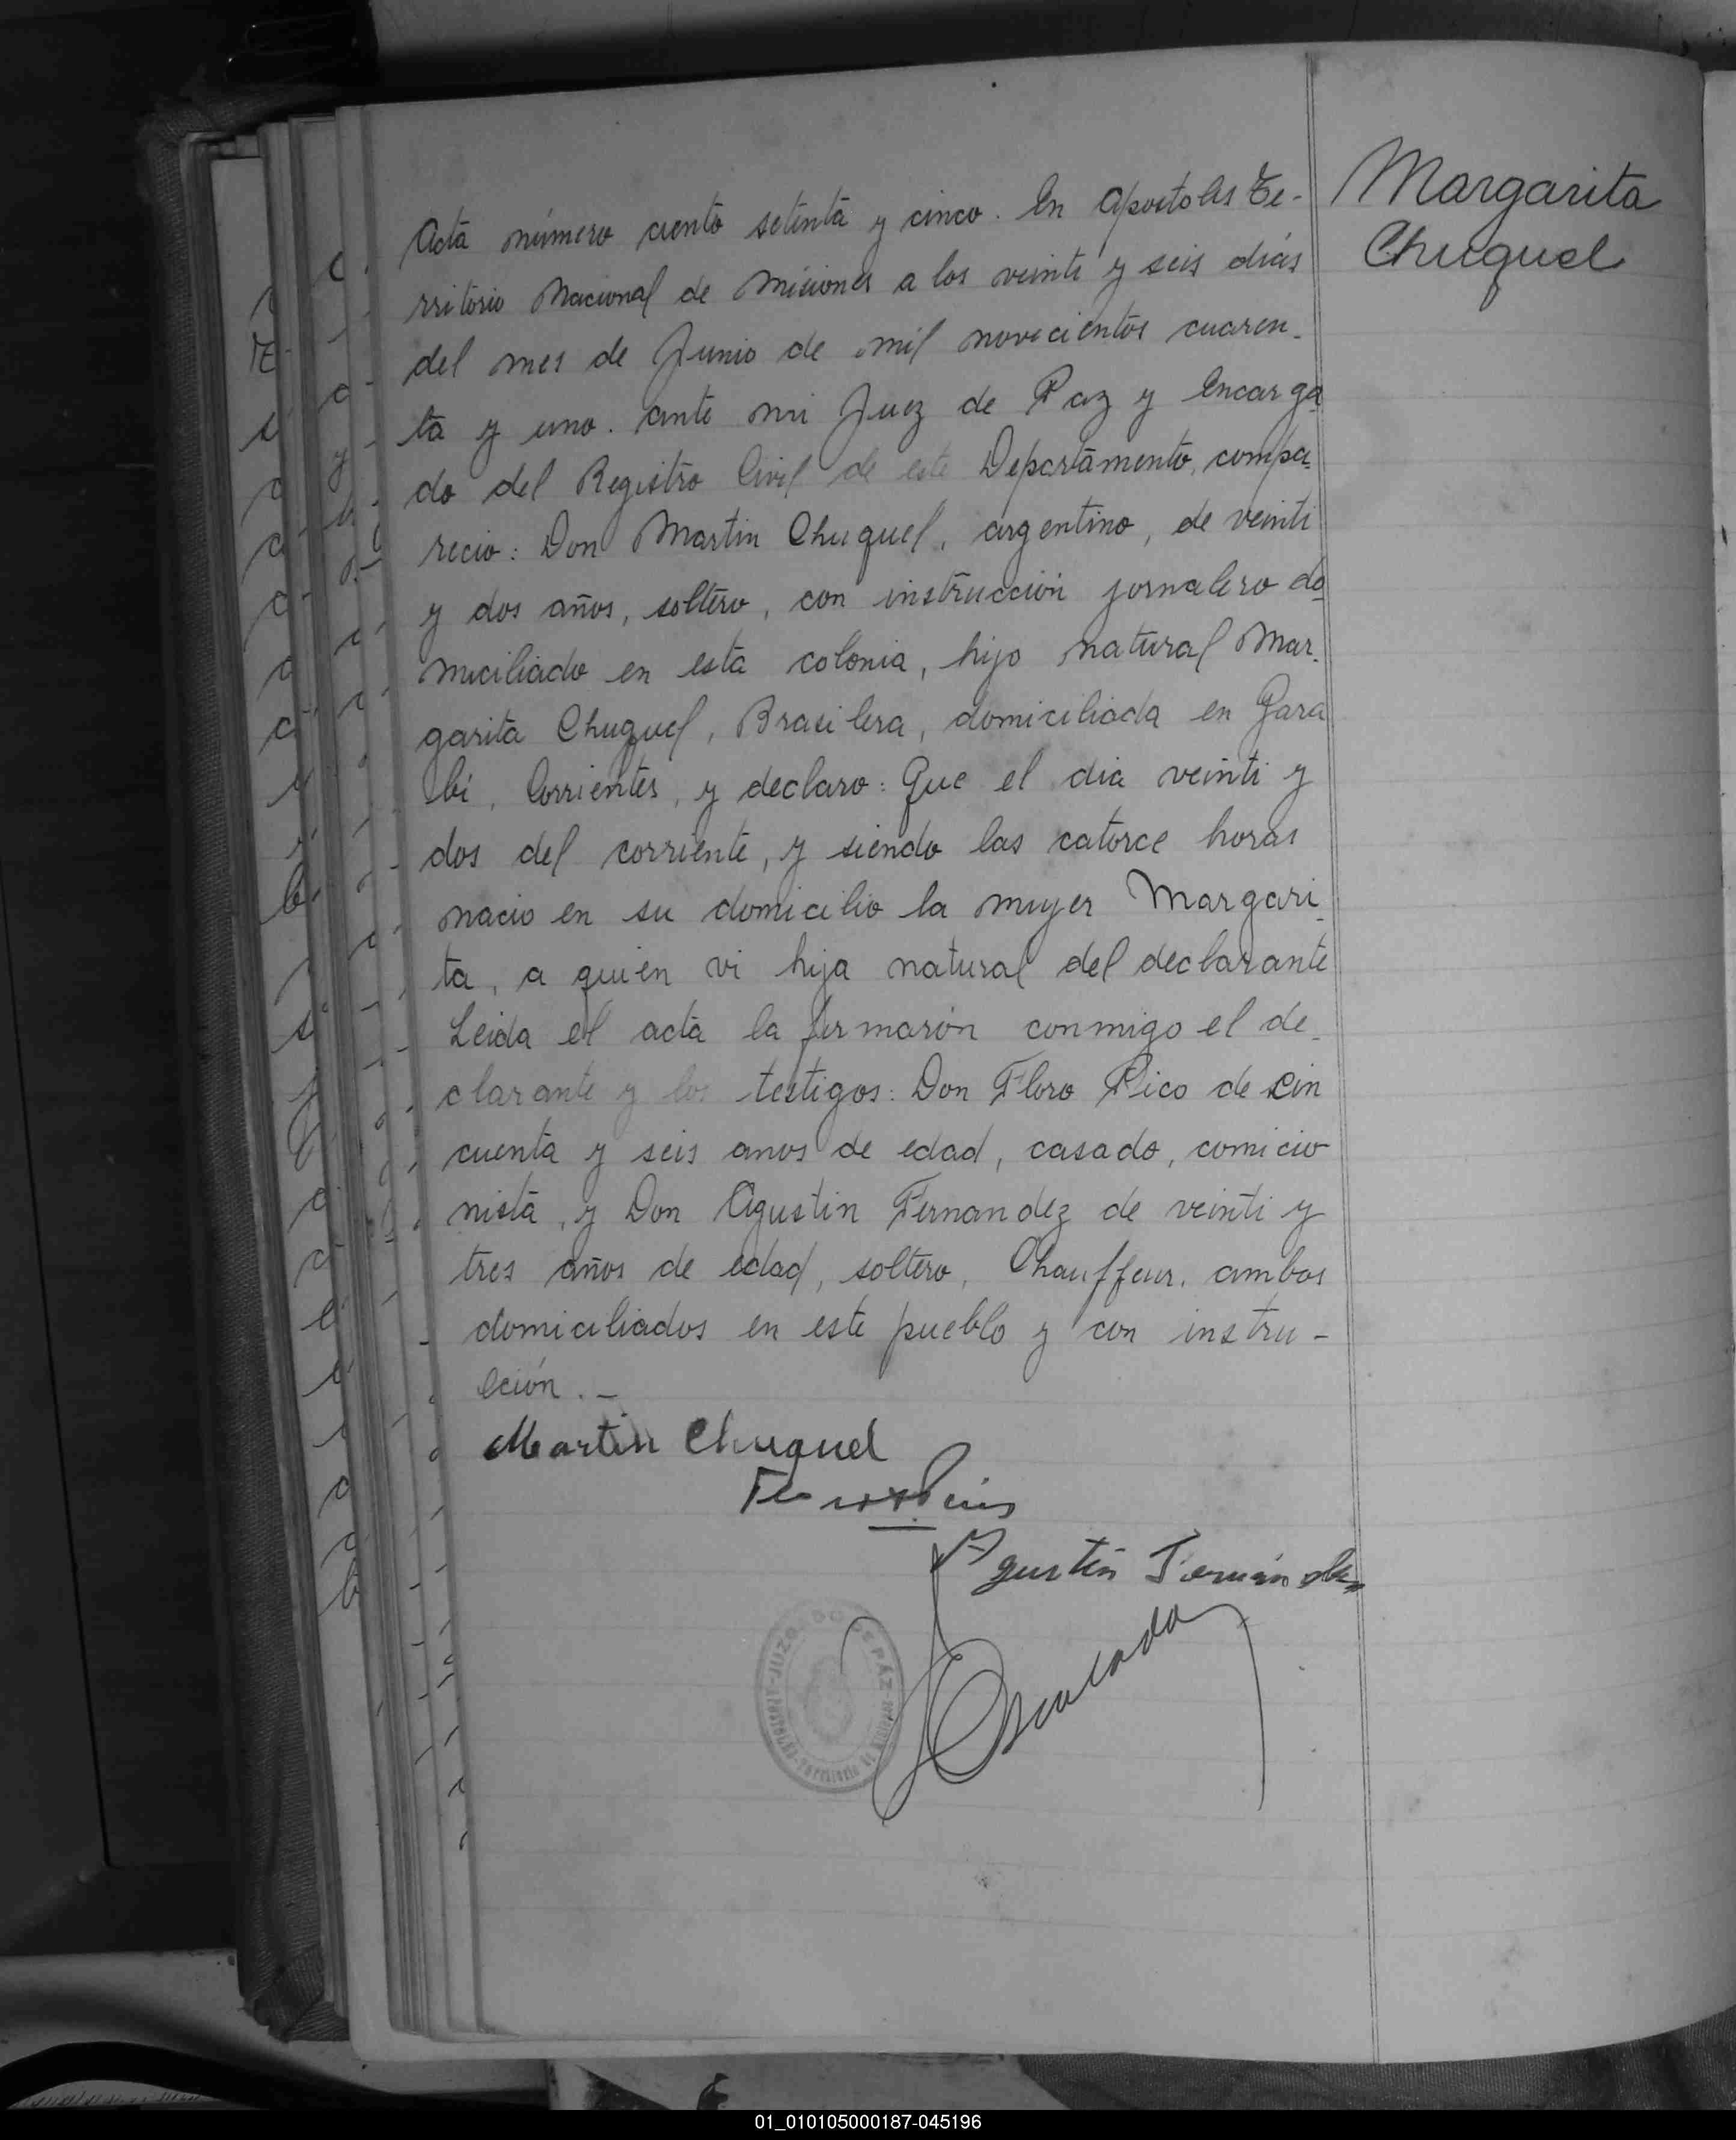 Margarita
Chuquel
Acta número ciento setenta y cinco. En Apostoles Te-
rritorio Nacional de Misiones a los veinte y seis dias
del mes de Junio de mil novecientos cuaren-
ta y uno. ante mi Juez de Paz y Encarga
do del Registro Civil de este Departamento, compa-
recio: Don Martin Chuquel, argentino, de veinti
y dos años, soltero, con instrucción jornalero do
miciliado en esta colonia, hijo natural Mar-
garita Chuquel, Brasilera, domiciliada en Gara
bi, Corrientes, y declaro: Que el dia veinti y
dos del corriente, y siendo las catorce horas
nacio en su domicilio la mujer Margari-
ta, a quien vi hija natural del declarante
Leida el acta la firmarón conmigo el de-
clarante y los testigos: Don Floro Pico de cin
cuenta y seis anos de edad, casado, comicio
nista, y Don Agustin Fernandez de veinti y
tres años de edad, soltero, Chauffeur. ambos
domiciliados en este pueblo y con instru-
cción. -
Martin Chuquel
Agustin Fernández
JUZGADO DE PAZ
Territorio de Misiones
01_010105000187-045196